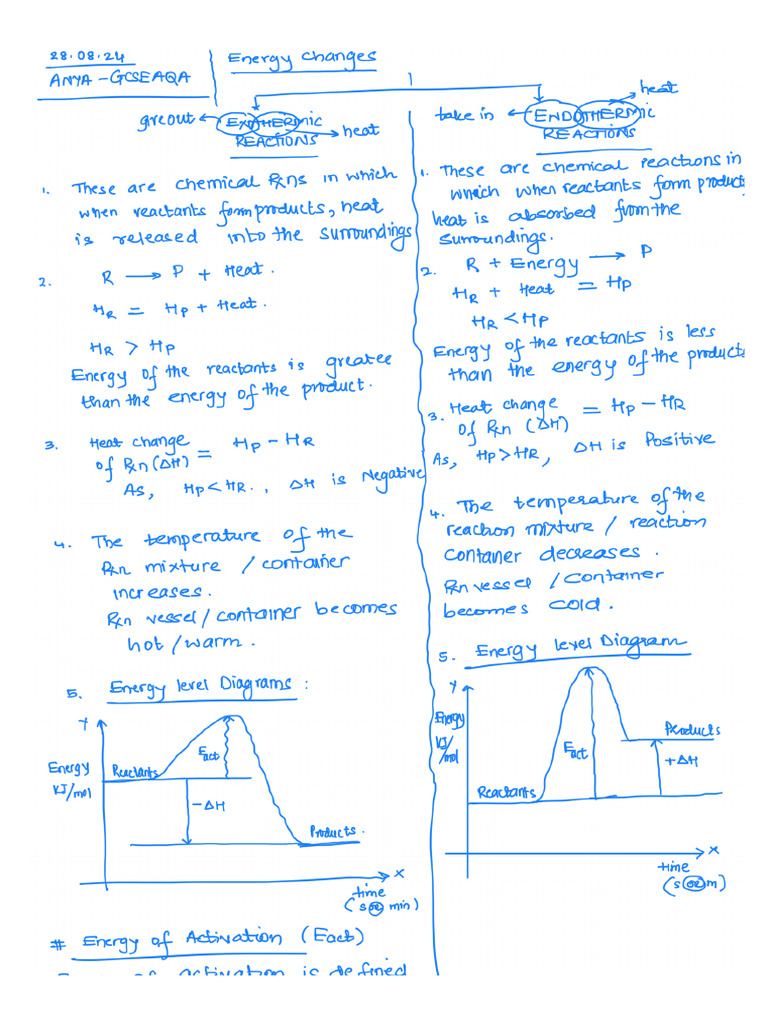 28.08.24
ANYA - GCSEAQA
Energy changes
greout
EXOTHERMIC
heat
REACTIONS
1. These are chemical Rxns in which
when reactants form products, heat
is released into the surroundings
2. R → P + Heat.
HR = HP + Heat.
HR > HP
Energy of the reactants is greater
than the energy of the product.
3. Heat change
of Rxn (ΔH) = HP - HR
As, HP < HR., ΔH is Negative
4. The temperature of the
Rxn mixture / container
increases.
Rxn vessel / container becomes
hot / warm.
5. Energy level Diagrams :
Y
Energy
KJ/mol
Reactants
Eact
-ΔH
Products.
X
time
(s or min)
# Energy of Activation (Eact)
Energy of activation is defined
heat
take in
ENDOTHERMIC
REACTIONS
1. These are chemical reactions in
which when reactants form products
heat is absorbed from the
surroundings.
2. R + Energy → P
HR + Heat = HP
HR < HP
Energy of the reactants is less
than the energy of the products
3. Heat change
of Rxn (ΔH) = HP - HR
As, HP > HR, ΔH is Positive
4. The temperature of the
reaction mixture / reaction
container decreases.
Rxn vessel / Container
becomes cold.
5. Energy level Diagram
Y
Energy
KJ/mol
Reactants
Eact
Products
+ΔH
X
time
(s or m)